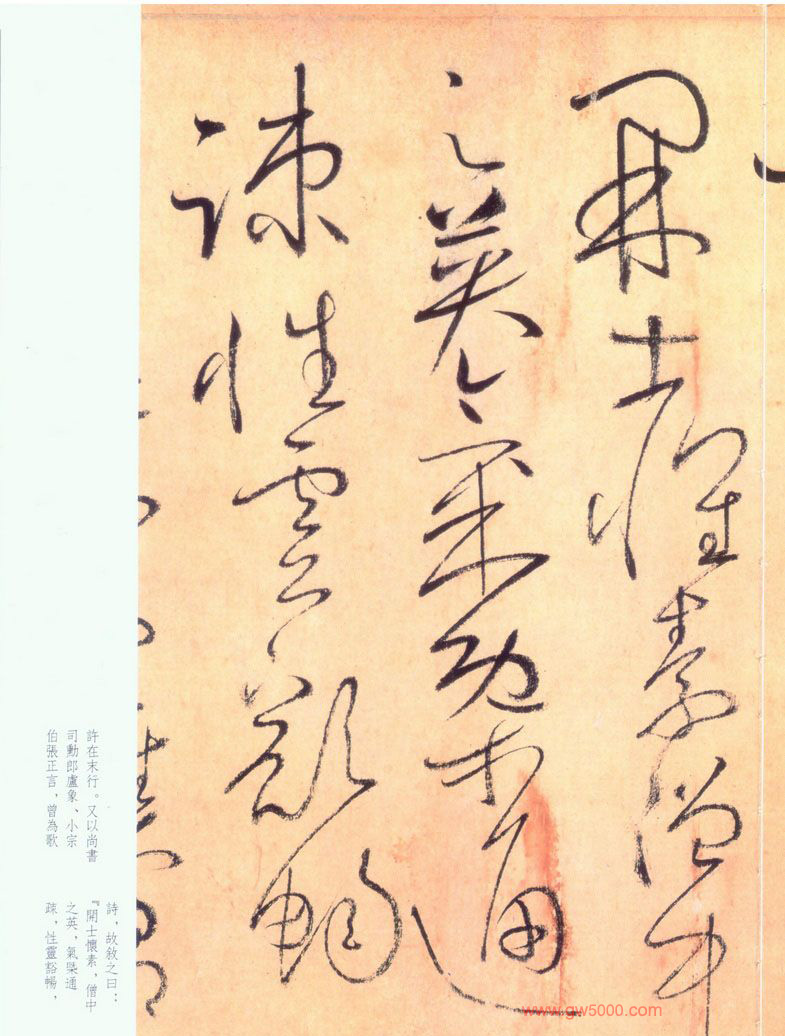 開士懷素僧中
之英氣槩通
疎性靈豁暢
許在末行。又以尚書
司勳郎盧象、小宗
伯張正言，曾為歌
詩，故敘之曰：
『開士懷素，僧中
之英，氣槩通
疎，性靈豁暢，
www.gw5000.com